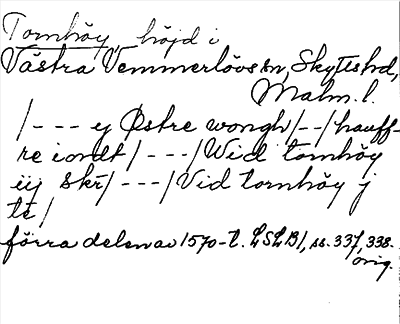 Tornhöy, höjd i
Västra Vemmerlövs sn, Skytts hd,
Malm. l.
/--- ej Østre wongh/--/hauff-
re iordt/---/Wid tornhöy
iij skr̄/---/Vid tornhöy j
te/
förra delen av 1570-t. LSLB1, ss. 337, 338.
orig.